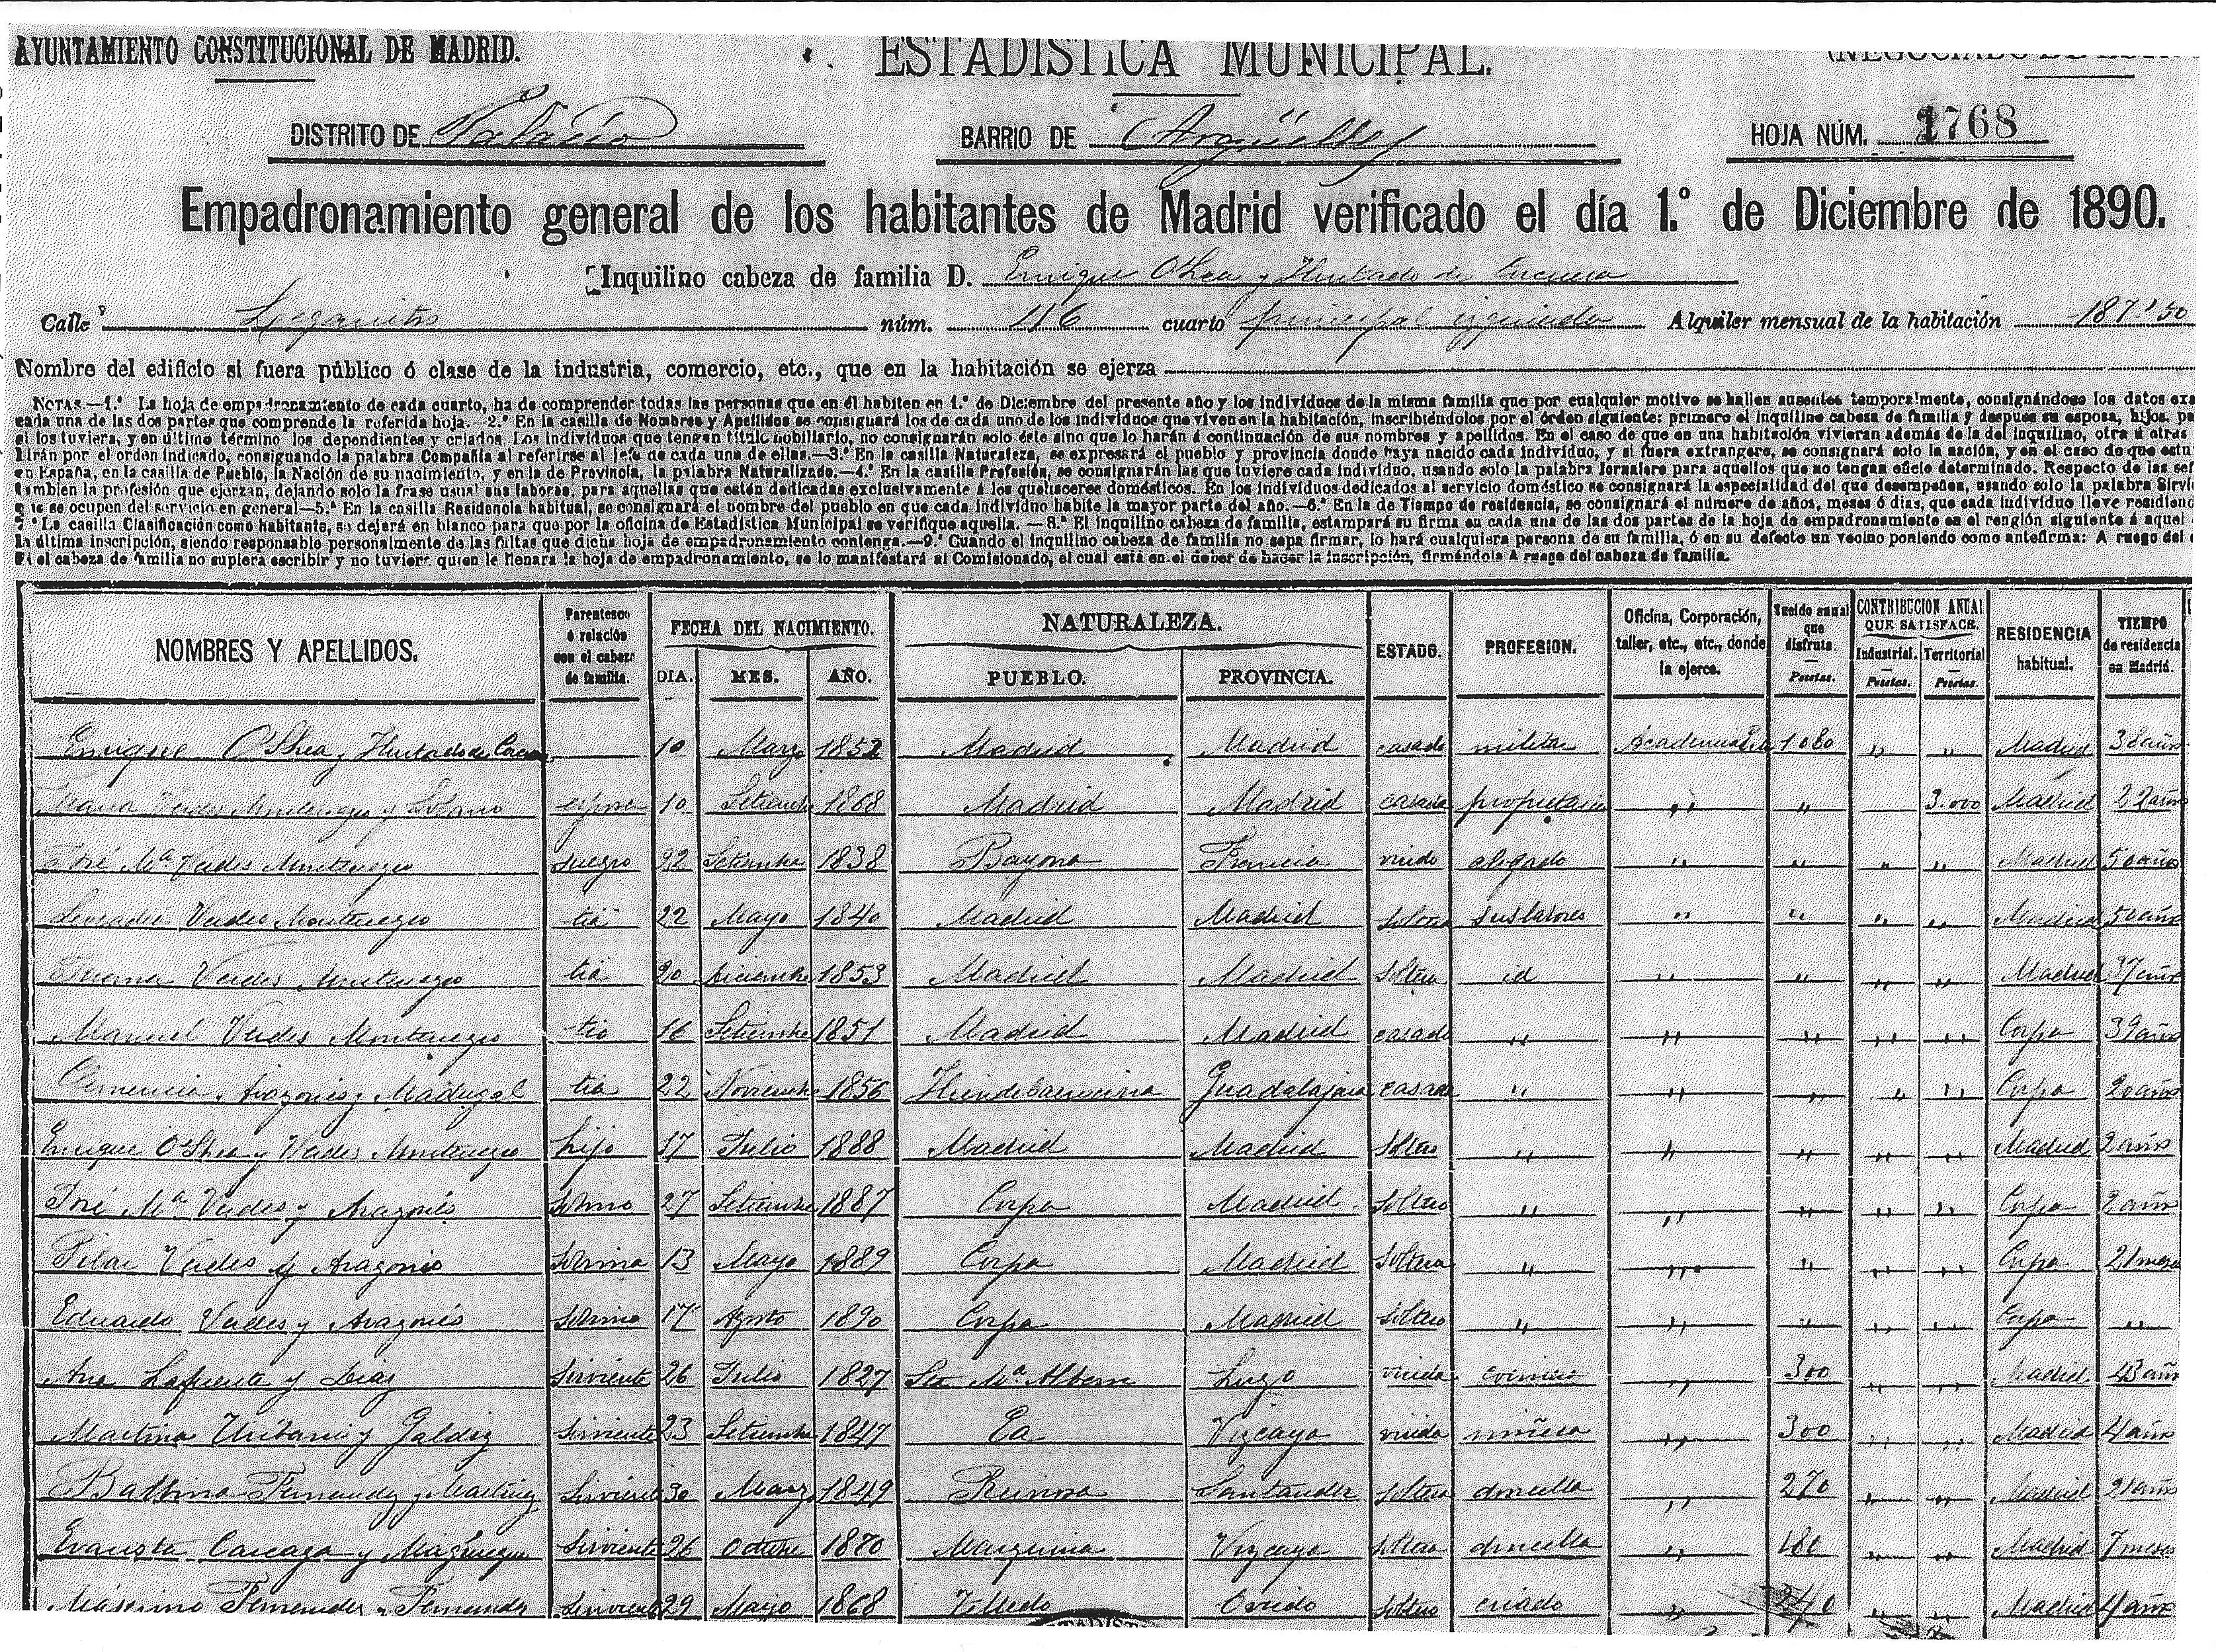 AYUNTAMIENTO CONSTITUCIONAL DE MADRID.
ESTADISTICA MUNICIPAL.
DISTRITO DE Palacio BARRIO DE Argüelles HOJA NÚM. 1768
Empadronamiento general de los habitantes de Madrid verificado el día 1.º de Diciembre de 1890.
Inquilino cabeza de familia D. Enrique OShea y Hurtado de Corcuera
Calle Leganitos núm. 46 cuarto principal izquierda Alquiler mensual de la habitación 187'50
Nombre del edificio si fuera público ó clase de la industria, comercio, etc., que en la habitación se ejerza
NOTAS—1.ª La hoja de empadronamiento de cada cuarto, ha de comprender todas las personas que en él habiten en 1.º de Diciembre del presente año y los individuos de la misma familia que por cualquier motivo se hallen ausentes temporalmente, consignándose los datos exa
cada una de las dos partes que comprende la referida hoja.—2.ª En la casilla de Nombres y Apellidos se consignará los de cada uno de los individuos que viven en la habitación, inscribiéndolos por el órden siguiente: primero el inquilino cabeza de familia y despues su esposa, hijos, pa
si los tuviera, y en último término los dependientes y criados. Los individuos que tengan título nobiliario, no consignarán solo éste sino que lo harán á continuación de sus nombres y apellidos. En el caso de que en una habitación vivieran además de la del inquilino, otra ú otras
birán por el orden indicado, consignando la palabra Compañía al referirse al jefe de cada una de ellas.—3.ª En la casilla Naturaleza, se expresará el pueblo y provincia donde haya nacido cada individuo, y si fuera extrangero, se consignará solo la nación, y en el caso de que estu
en España, en la casilla de Pueblo, la Nación de su nacimiento, y en la de Provincia, la palabra Naturalizado.—4.ª En la casilla Profesión, se consignarán las que tuviere cada individuo, usando solo la palabra Jornalero para aquellos que no tengan oficio determinado. Respecto de las señ
tambien la profesión que ejerzan, dejando solo la frase usual sus labores, para aquellas que estén dedicadas exclusivamente á los quehaceres domésticos. En los individuos dedicados al servicio doméstico se consignará la especialidad del que desempeñen, usando solo la palabra Sirvi
que se ocupen del servicio en general—5.ª En la casilla Residencia habitual, se consignará el nombre del pueblo en que cada individuo habite la mayor parte del año.—6.ª En la de Tiempo de residencia, se consignará el número de años, meses ó días, que cada individuo lleve residiend
7.ª La casilla Clasificación como habitante, se dejará en blanco para que por la oficina de Estadística Municipal se verifique aquella. — 8.ª El inquilino cabeza de familia, estampará su firma en cada una de las dos partes de la hoja de empadronamiento en el renglón siguiente á aquel
la última inscripción, siendo responsable personalmente de las faltas que dicha hoja de empadronamiento contenga.—9.ª Cuando el inquilino cabeza de familia no sepa firmar, lo hará cualquiera persona de su familia, ó en su defecto un vecino poniendo como antefirma: A ruego del
Si el cabeza de familia no supiera escribir y no tuviera quien le llenara la hoja de empadronamiento, se lo manifestará al Comisionado, el cual está en el deber de hacer la inscripción, firmándola A ruego del cabeza de familia.
NOMBRES Y APELLIDOS. Parentesco ó relación con el cabeza de familia. FECHA DEL NACIMIENTO. DIA. MES. AÑO. NATURALEZA. PUEBLO. PROVINCIA. ESTADO. PROFESION. Oficina, Corporación, taller, etc., etc., donde la ejerce. Sueldo anual que disfruta. Pesetas. CONTRIBUCION ANUAL QUE SATISFACE. Industrial. Pesetas. Territorial Pesetas. RESIDENCIA habitual. TIEMPO de residencia en Madrid.
Enrique O'Shea y Hurtado de 10 Marzo 1852 Madrid Madrid casado militar Academia 1080 " " Madrid 38 años
Maria Verdes Montenegro y esposa 10 Setiembre 1868 Madrid Madrid casada propietaria " " 3.000 Madrid 22 años
José Mª Verdes Montenegro suegro 22 Setiembre 1838 Bayona Francia viudo abogado " " " " Madrid 50 años
Verdes Montenegro tia 22 Mayo 1840 Madrid Madrid soltera sus labores " " " " Madrid 50 años
Verdes Montenegro tia 20 Diciembre 1853 Madrid Madrid soltera id " " " " Madrid 37 años
Manuel Verdes Montenegro tio 16 Setiembre 1851 Madrid Madrid casado " " " " " Corpa 39 años
Clemencia Aragonés y Madrigal tia 22 Noviembre 1856 Hiendelaencina Guadalajara casada " " " " " Corpa 20 años
Enrique O'Shea y Verdes Montenegro hijo 17 Julio 1888 Madrid Madrid soltero " " " " " Madrid 2 años
José Mª Verdes y Aragonés sobrino 27 Setiembre 1887 Corpa Madrid soltero " " " " " Corpa 2 años
Pilar Verdes y Aragonés sobrina 13 Mayo 1889 Corpa Madrid soltera " " " " " Corpa 21 meses
Eduardo Verdes y Aragonés sobrino 17 Agosto 1890 Corpa Madrid soltero " " " " " Corpa "
Ana Lafuena y Diaz sirviente 26 Julio 1827 Sta Mª Lugo viuda " 300 " " Madrid 43 años
Martina Uribarri y Galdiz sirviente 23 Setiembre 1847 Ea Vizcaya viuda niñera " 300 " " Madrid 4 años
Balbina Fernandez y Martinez sirviente 30 Marzo 1849 Reinosa Santander soltera doncella " 270 " " Madrid 21 años
Evarista Careaga y sirviente 26 Octubre 1870 Marquina Vizcaya soltera doncella " 180 " " Madrid 7 meses
Máximo Fernandez y Fernandez sirviente 29 Mayo 1868 Oviedo soltero criado " 240 " " Madrid 4 años